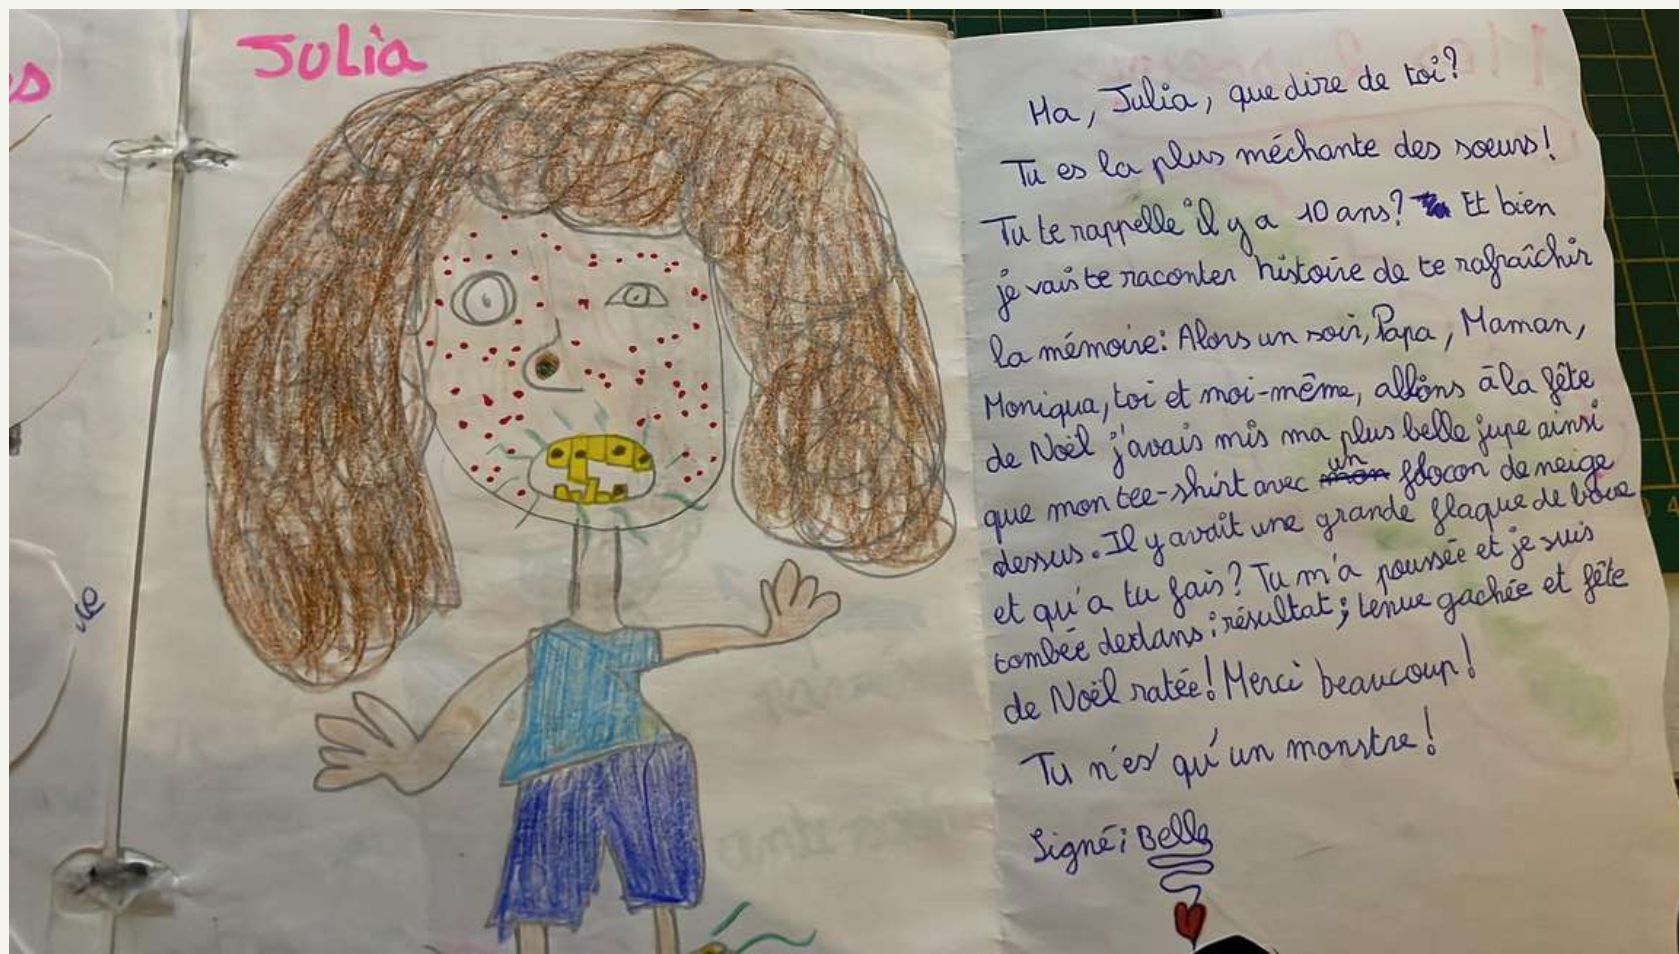 s
Julia
ce
Ha, Julia, que dire de toi?
Tu es la plus méchante des soeurs!
Tu te rappelle il y a 10 ans? Et bien
je vais te raconter histoire de te rafraîchir
la mémoire: Alors un soir, Papa, Maman,
Moniqua, toi et moi-même, allions à la fête
de Noël j'avais mis ma plus belle jupe ainsi
que mon tee-shirt avec un flocon de neige
dessus. Il y avait une grande flaque de boue
et qu'a tu fais? Tu m'a poussée et je suis
tombée dedans; résultat; tenue gachée et fête
de Noël ratée! Merci beaucoup!
Tu n'es qu'un monstre!
Signé: Belle